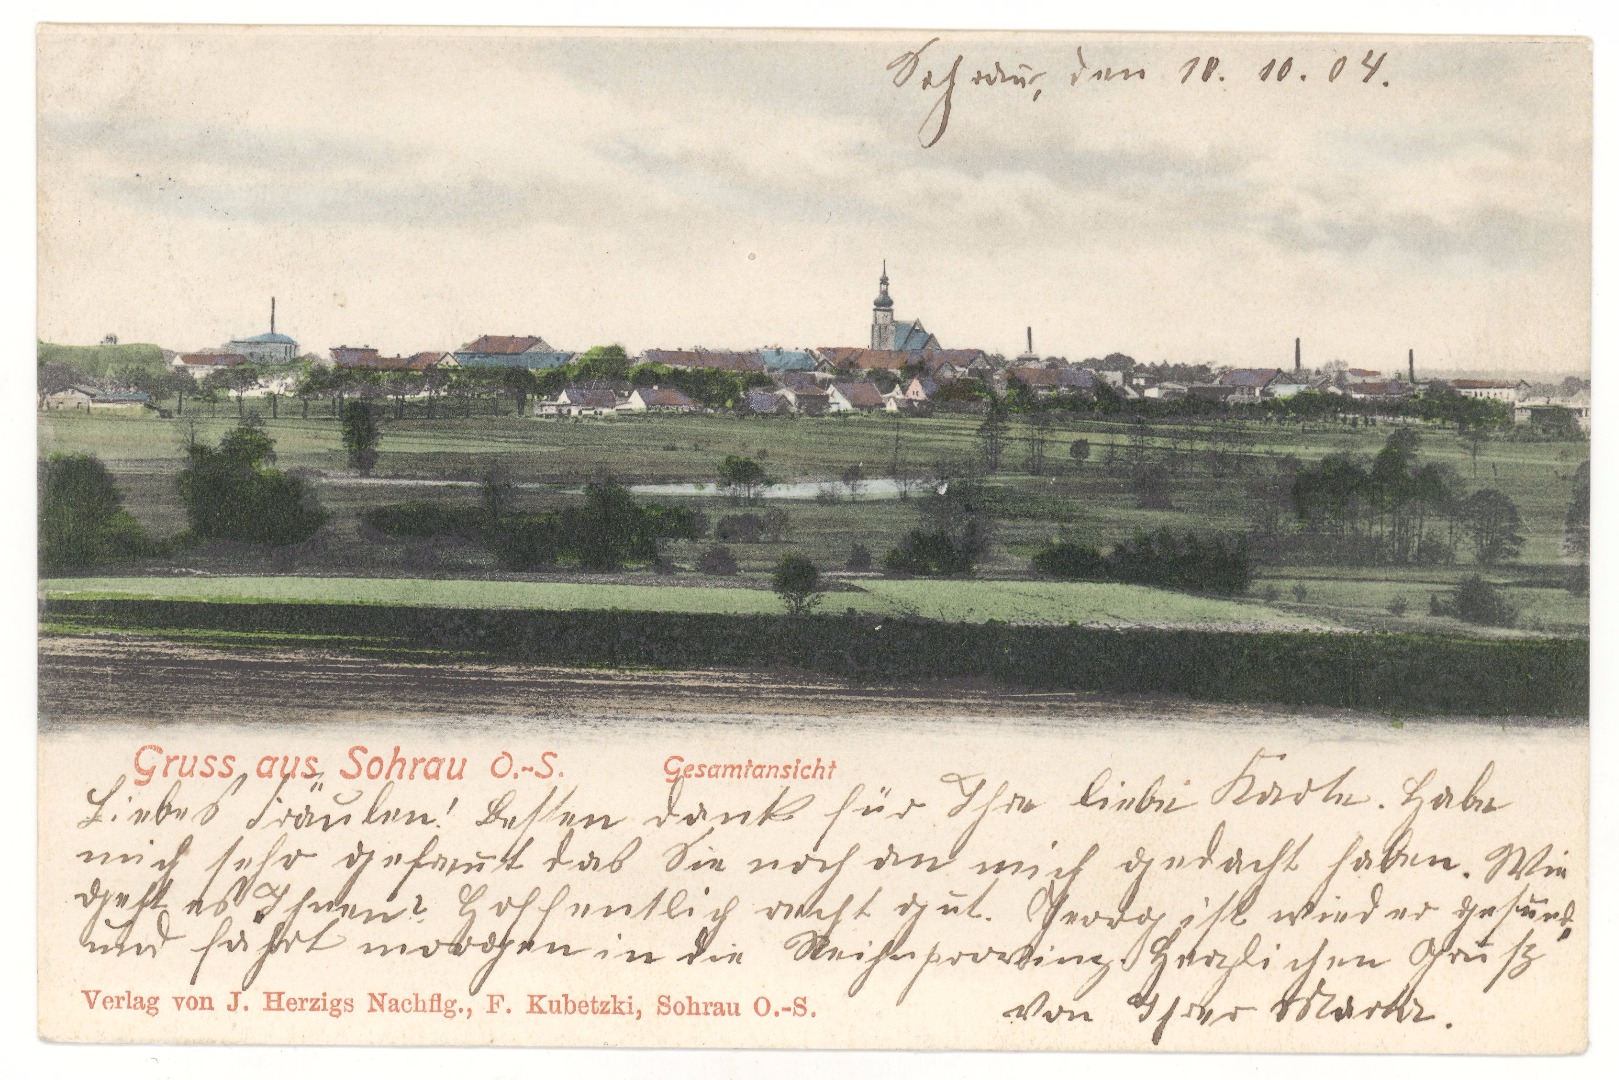 Sohrau, den 18. 10. 04.
Gruss aus Sohrau O.-S. Gesamtansicht
Liebes Fräulen! Besten dank für Ihre liebe Karte. Habe
mich sehr gefreut das Sie noch an mich gedacht haben. Wie
geht es Ihnen? Hoffentlich recht gut. Georg ist wieder gesund,
und fährt morgen in die Reihnprovinz. Herzlichen Gruß
Verlag von J. Herzigs Nachflg., F. Kubetzki, Sohrau O.-S.
von Ihrer Maria.